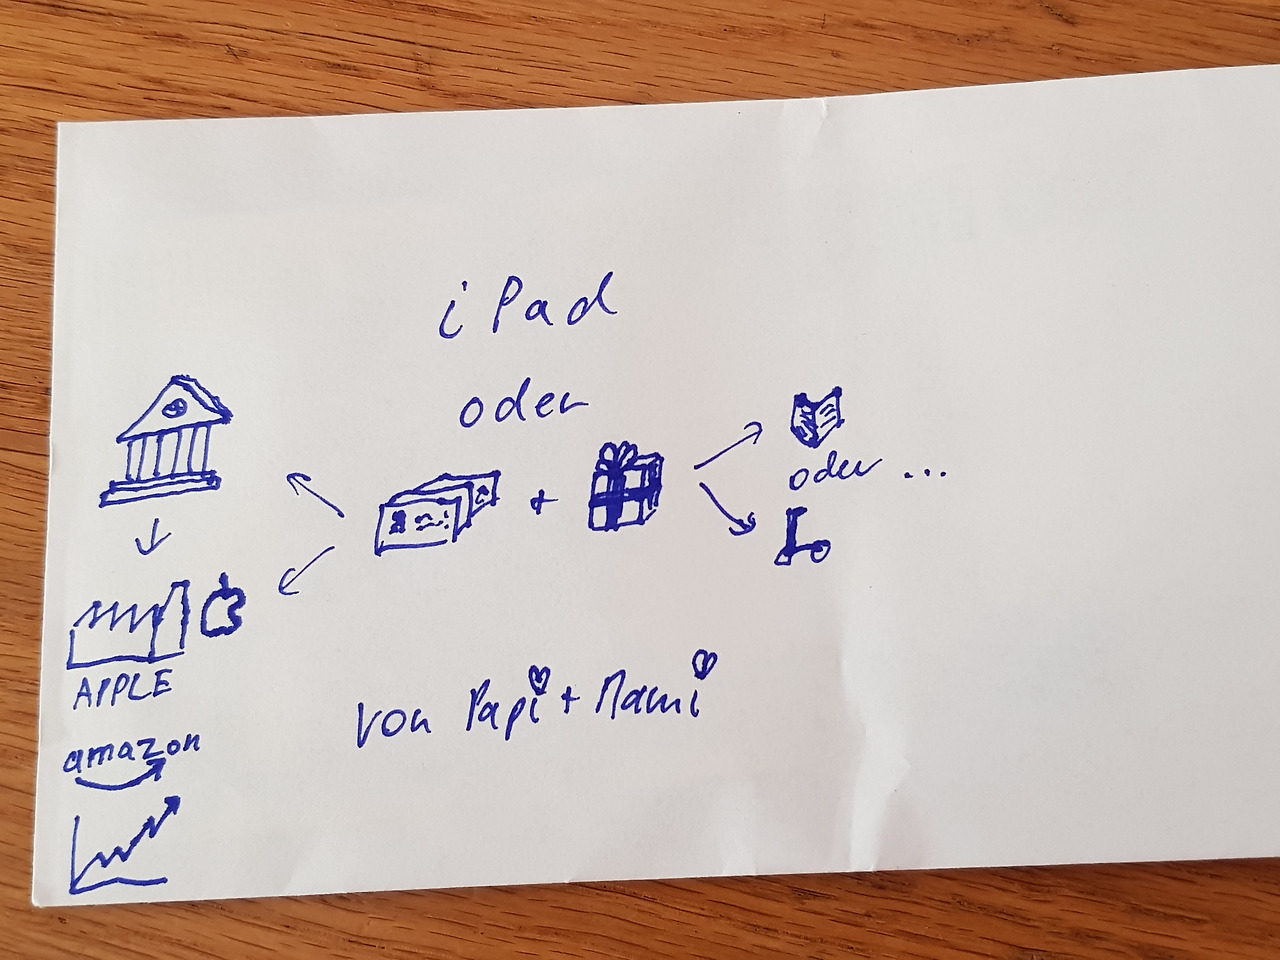 iPad
oder
+
oder ...
APPLE
amazon
von Papi + Mami